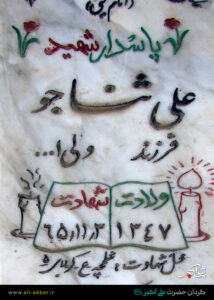 پاسدار شهید
علی ثناجو
فرزند ولی ا...
ولادت شهادت
۱۳۴۷ ۶۵,۱۱,۲
محل شهادت: شلمچه ع-کربلای ۵
www.ali-akbar.ir
گردان حضرت علی اکبر